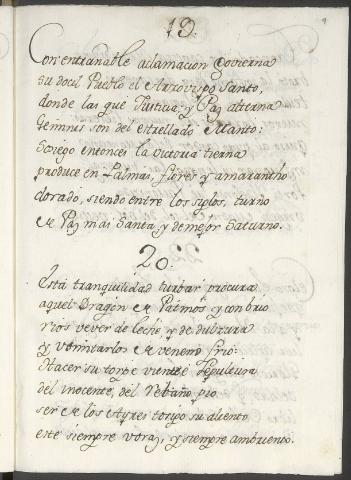 19.
Con entrañable aclamacion Govierna
su docil Pueblo el Arzovispo Santo,
donde las que Justicia, y Paz alterna
Geminis son del estrellado Manto:
Sosiego entonces la victoria tierna
produce en Palmas, flores y amarantho
dorado, siendo entre los siglos, turno
de Paz mas Santa, y de mejor Saturno.
20.
Esta tranquilidad turbar procura
aquel Dragon de Patmos y con brio
rios vever de leche, y de dulzura
y vomitarlos de veneno frio:
Hacer su torpe vientre Sepultura
del inocente, del Rebaño pio
ser de los Ayres torpo su aliento
este siempre voraz, y siempre ambriento.